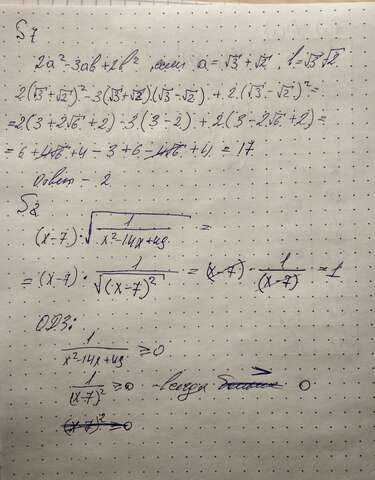 57
2a² - 3ab + 2b², если a = √3 + √2, b = √3 √2
2(√3 + √2)² - 3(√3 + √2)(√3 - √2) + 2·(√3 - √2)² =
= 2(3 + 2√6 + 2) - 3·(3 - 2) + 2(3 - 2√6 + 2) =
= 6 + 4√6 + 4 - 3 + 6 - 4√6 + 4 = 17
Ответ - 2
58
(x - 7)·√(1/(x² - 14x + 49)) =
= (x - 7)·1/√((x - 7)²) = (x - 7)·1/(x - 7) = 1
ОДЗ:
1/(x² - 14x + 49) ≥ 0
1/(x - 7)² ≥ 0 - всегда > 0
(x - 7)² = 0